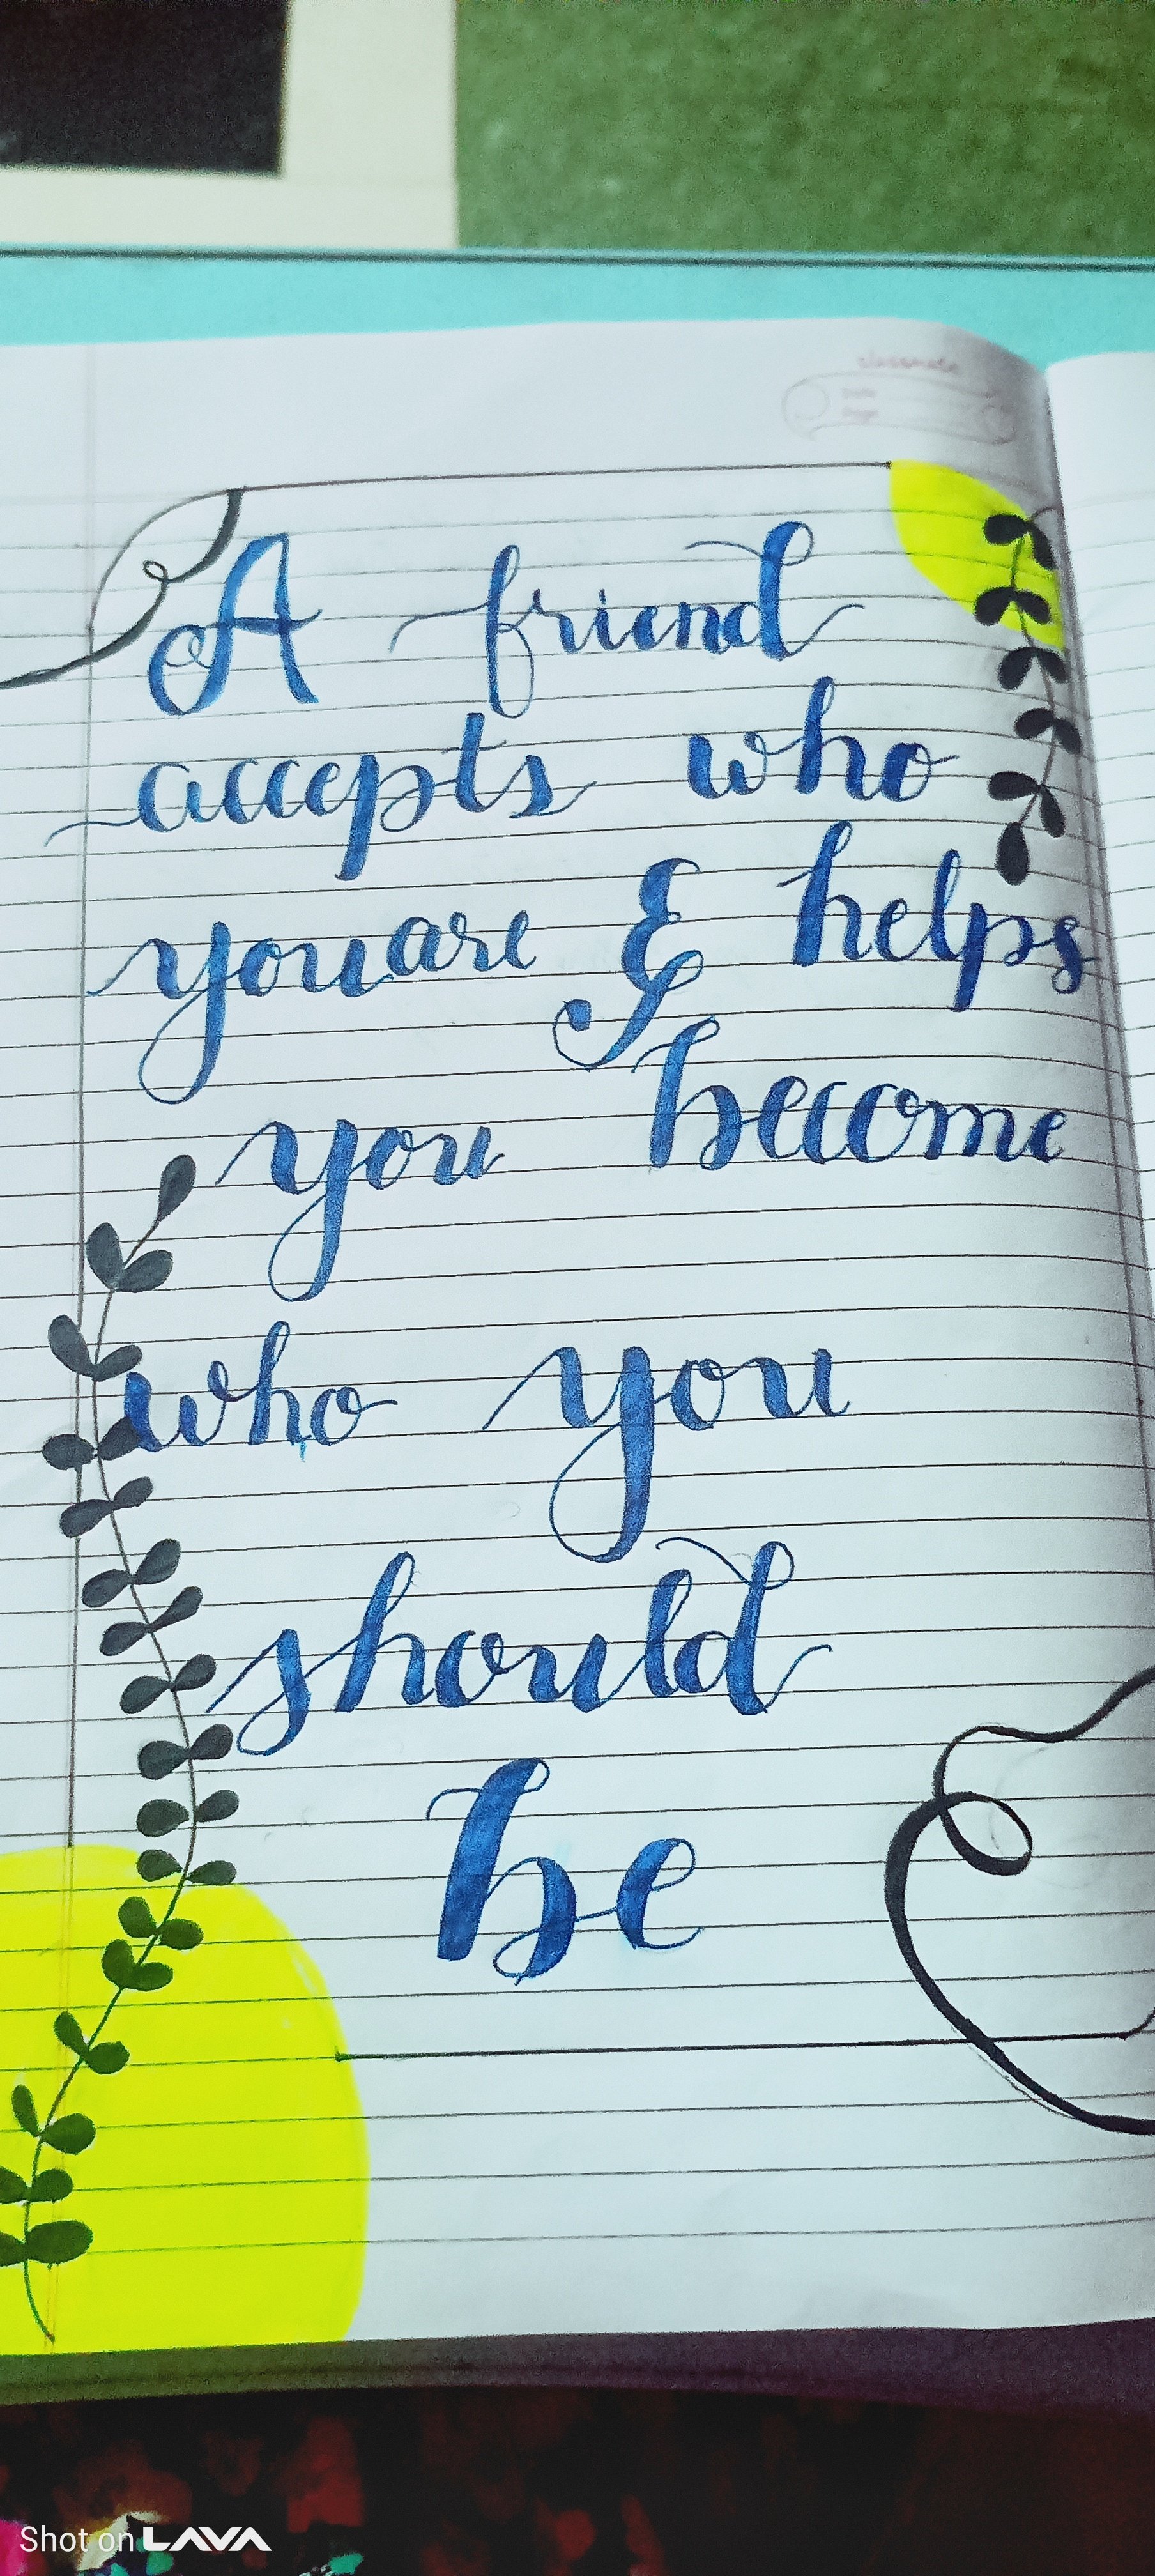 classmate
Date
Page
A friend
accepts who
you are & helps
you become
who you
should
be
Shot on LAVA